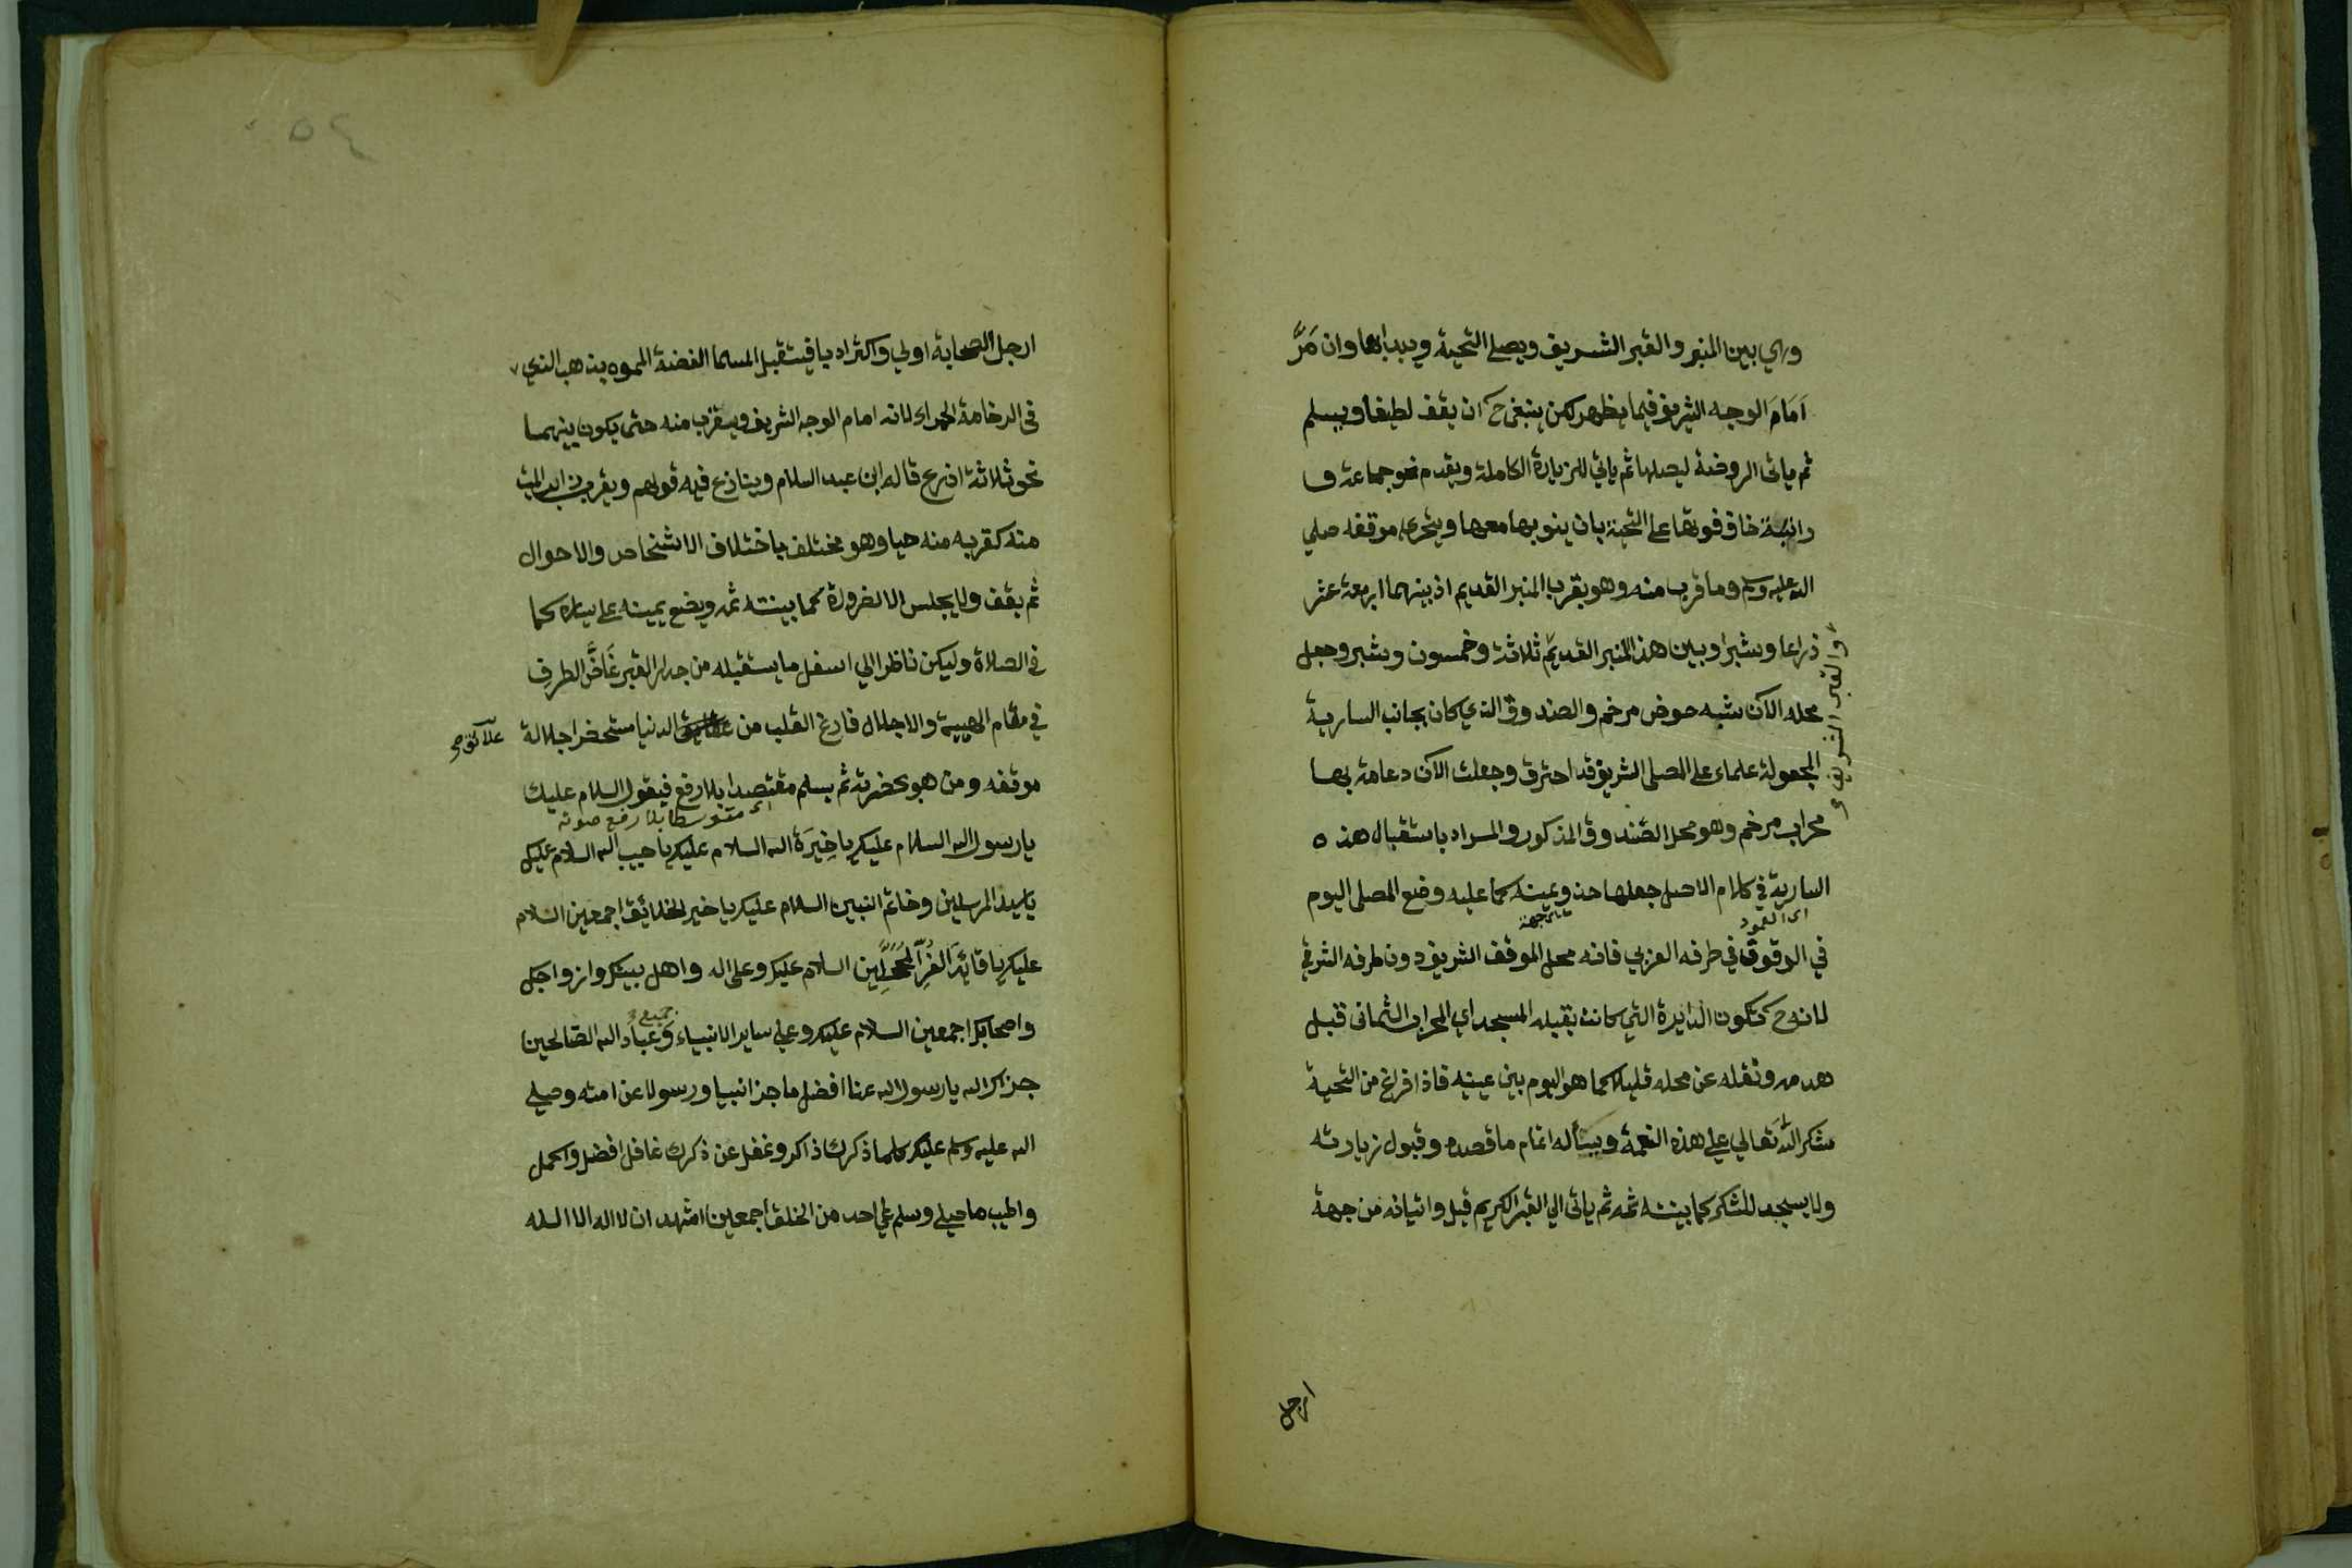 وهي بين المنبر والقبر الشريف ويصلي التحية ويبدا بها وان مَرَّ
اَمَامَ الوجه الشريف فيما يظهر لكن ينبغي ح ان يقف لطيفا ويسلم
ثم ياتى الروضة ليصلها ثم ياتي للزيارة الكاملة ويقدم نحو جماعة و
راتبة خاف فوتها على التحية بان ينو بها معها ويتحرى موقفه صلي
الله عليه وسلم وما قرب منه وهو بقرب المنبر القديم اذ بينهما اربعة عشر
ذراعا وشبرا وبين هذا المنبر القديم ثلاثة وخمسون وشبر وجعل
و القبر الشريف
محله الآن شبه حوض مرخم والصندوق الذي كان بجانب السارية
المجعولة علما على المصلى الشريف قد احترق وجعلت الآن دعامة بها
محراب مرخم وهو محل الصندوق المذكور والمراد باستقبال هذه
السارية في كلام الاحيا جعلها حذو يمينه كما عليه وضع المصلى اليوم
اى العمود
جهة
في الوقوف في طرفه الغربي فانه محل الموقف الشريف دون طرفه الشرقي
لانه ح تكون الدايرة التي كانت بقبلة المسجد اي المحراب العثمانى قبل
هدمه ونقله عن محله قليلا كما هو اليوم بين عينيه فاذا فرغ من التحية
شكر الله تعالي علي هذه النعمة ويسأله اتمام ما قصده وقبول زيارته
ولا يسجد للشكر كما بينته ثمه ثم ياتى الي القبر الكريم قيل واتيانه من جهة
ارجل
٥٤
ارجل الصحابة اولي واكثر ادبا فيستقبل المسمار الفضة المموه بذهب الذي
في الرخامة الحمراء لانه امام الوجه الشريف ويقرب منه حتى يكون بينهما
نحو ثلاثة اذرع قاله ابن عبد السلام وينازع فيه قولهم ويقرب زاير الميت
منه كقربه منه حيا وهو مختلف باختلاف الاشخاص والاحوال
ثم يقف ولا يجلس الا لضرورة كما بينته ثمه ويضع يمينه على يساره كما
في الصلاة وليكن ناظرا الي اسفل ما يستقبله من جدار القبر غَاضَّ الطرف
في مقام الهيبة والاجلال فارغ القلب من الدنيا مستحضرا جلالة
علائق صح
موقفه ومن هو بحضرته ثم يسلم مقتصدا بلا رفع فيقول السلام عليك
اى متوسطا بلا رفع صوته
يارسول الله السلام عليك ياخِيَرَة الله السلام عليك ياحبيب الله السلام عليك
ياسيد المرسلين وخاتم النبيين السلام عليك ياخير الخلائق اجمعين السلام
عليك ياقائد الغر المحجلين السلام عليك وعلى اله واهل بيتك وازواجك
واصحابك اجمعين السلام عليك وعلي ساير الانبياء وعباد الله الصالحين
جميع
جزاك الله يارسول الله عنا افضل ما جزا نبيا ورسولا عن امته وصلي
الله عليه وسلم عليك كلما ذكرك ذاكر وغفل عن ذكرك غافل افضل واكمل
واطيب ما صلي وسلم علي احد من الخلق اجمعين اشهد ان لا اله الا الله